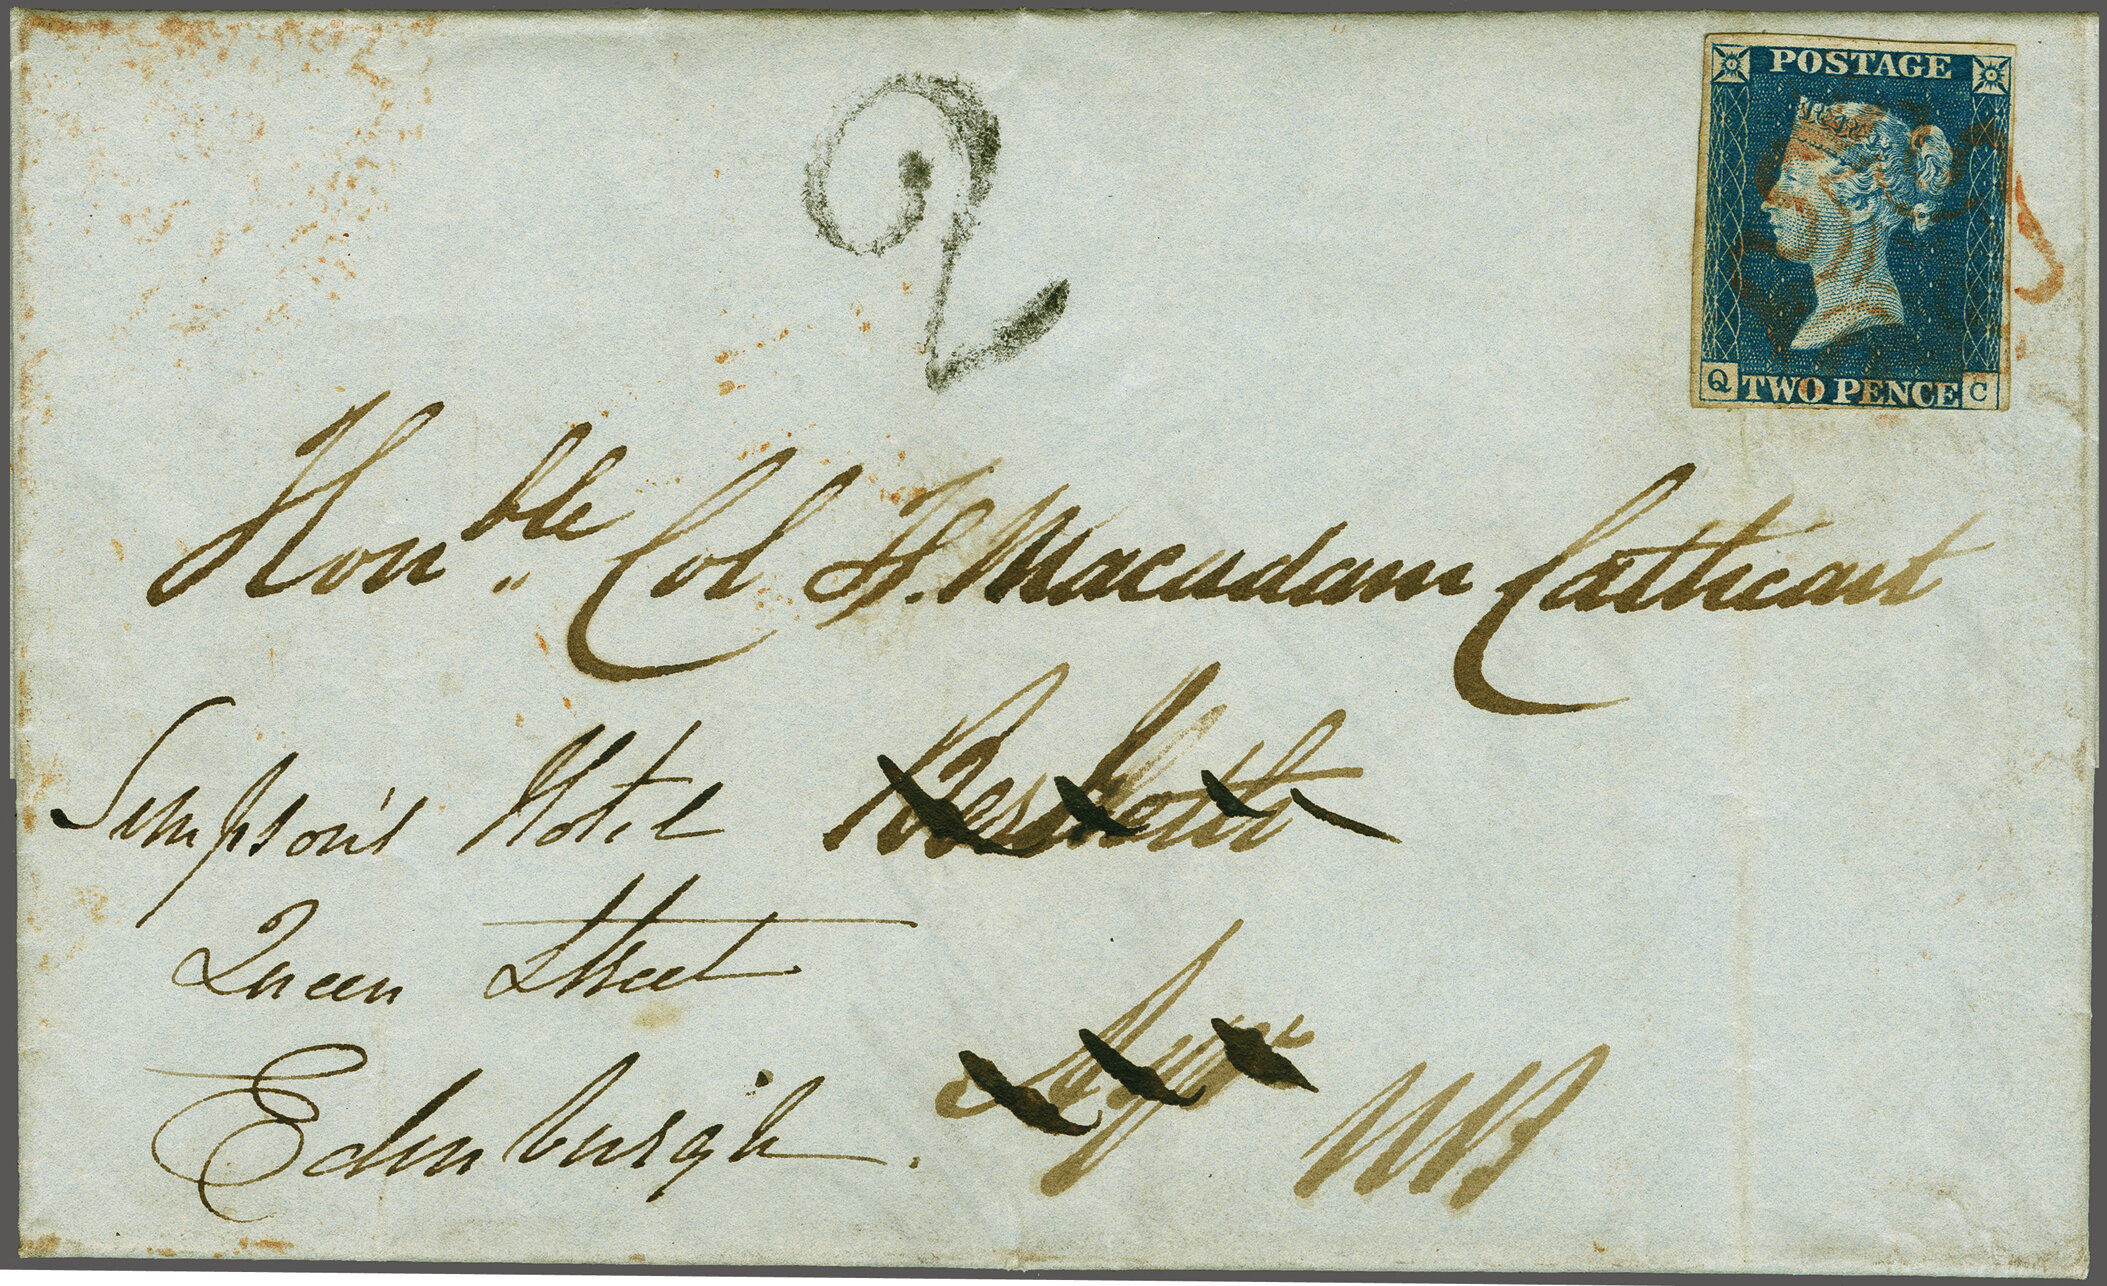 POSTAGE
2
Q TWO PENCE C
Honble Col F. Macadam Cathcart
Simpson's Hotel
Queen Street
Edinburgh.
NB